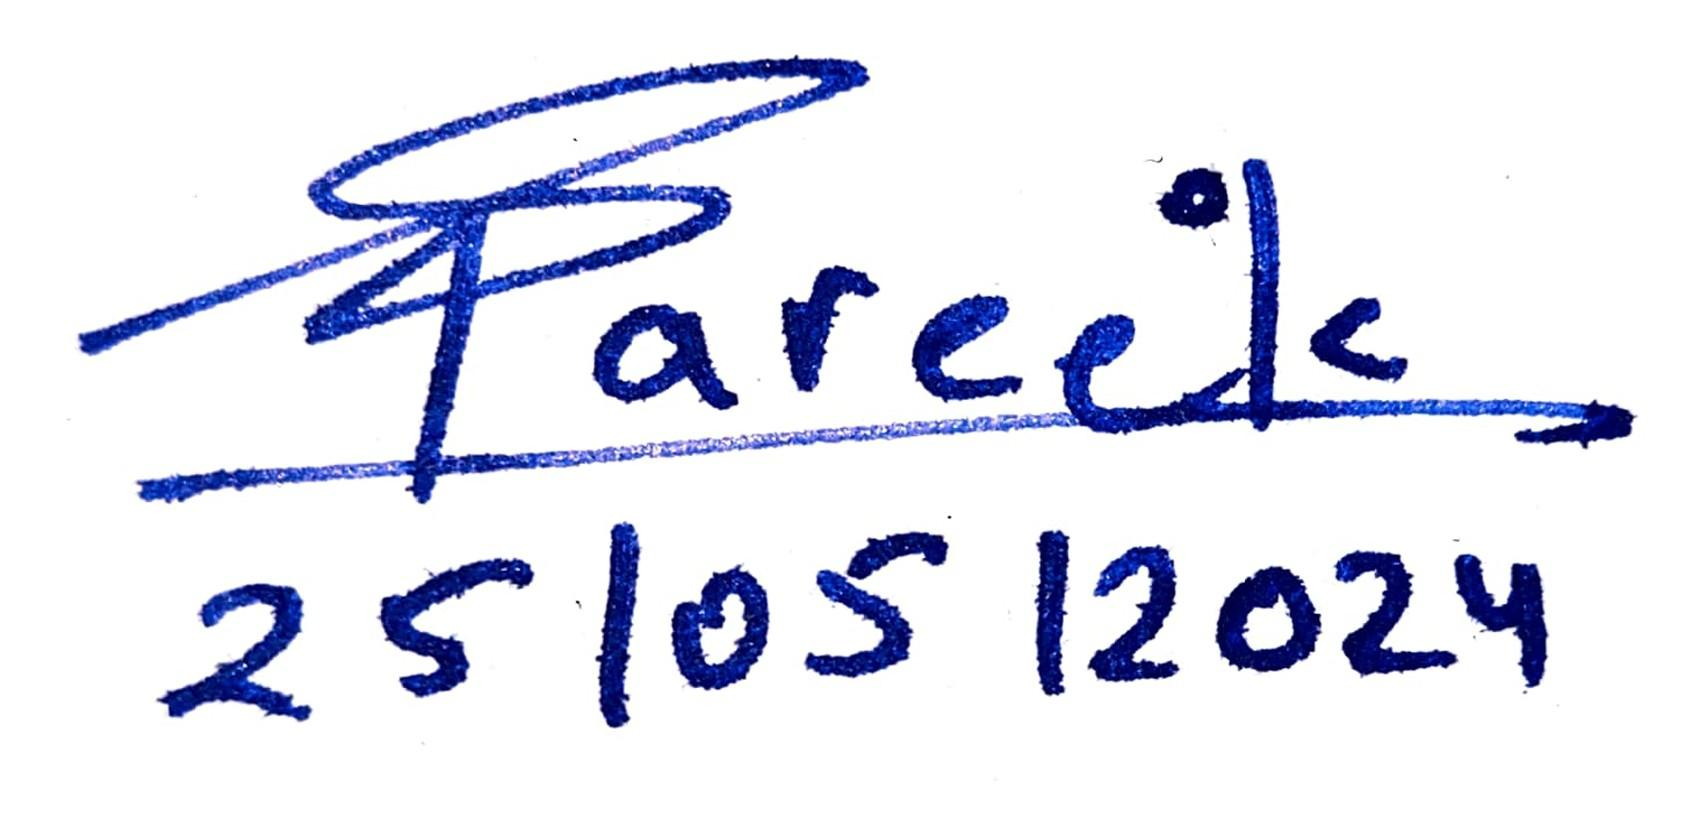 Pareek
25/05/2024